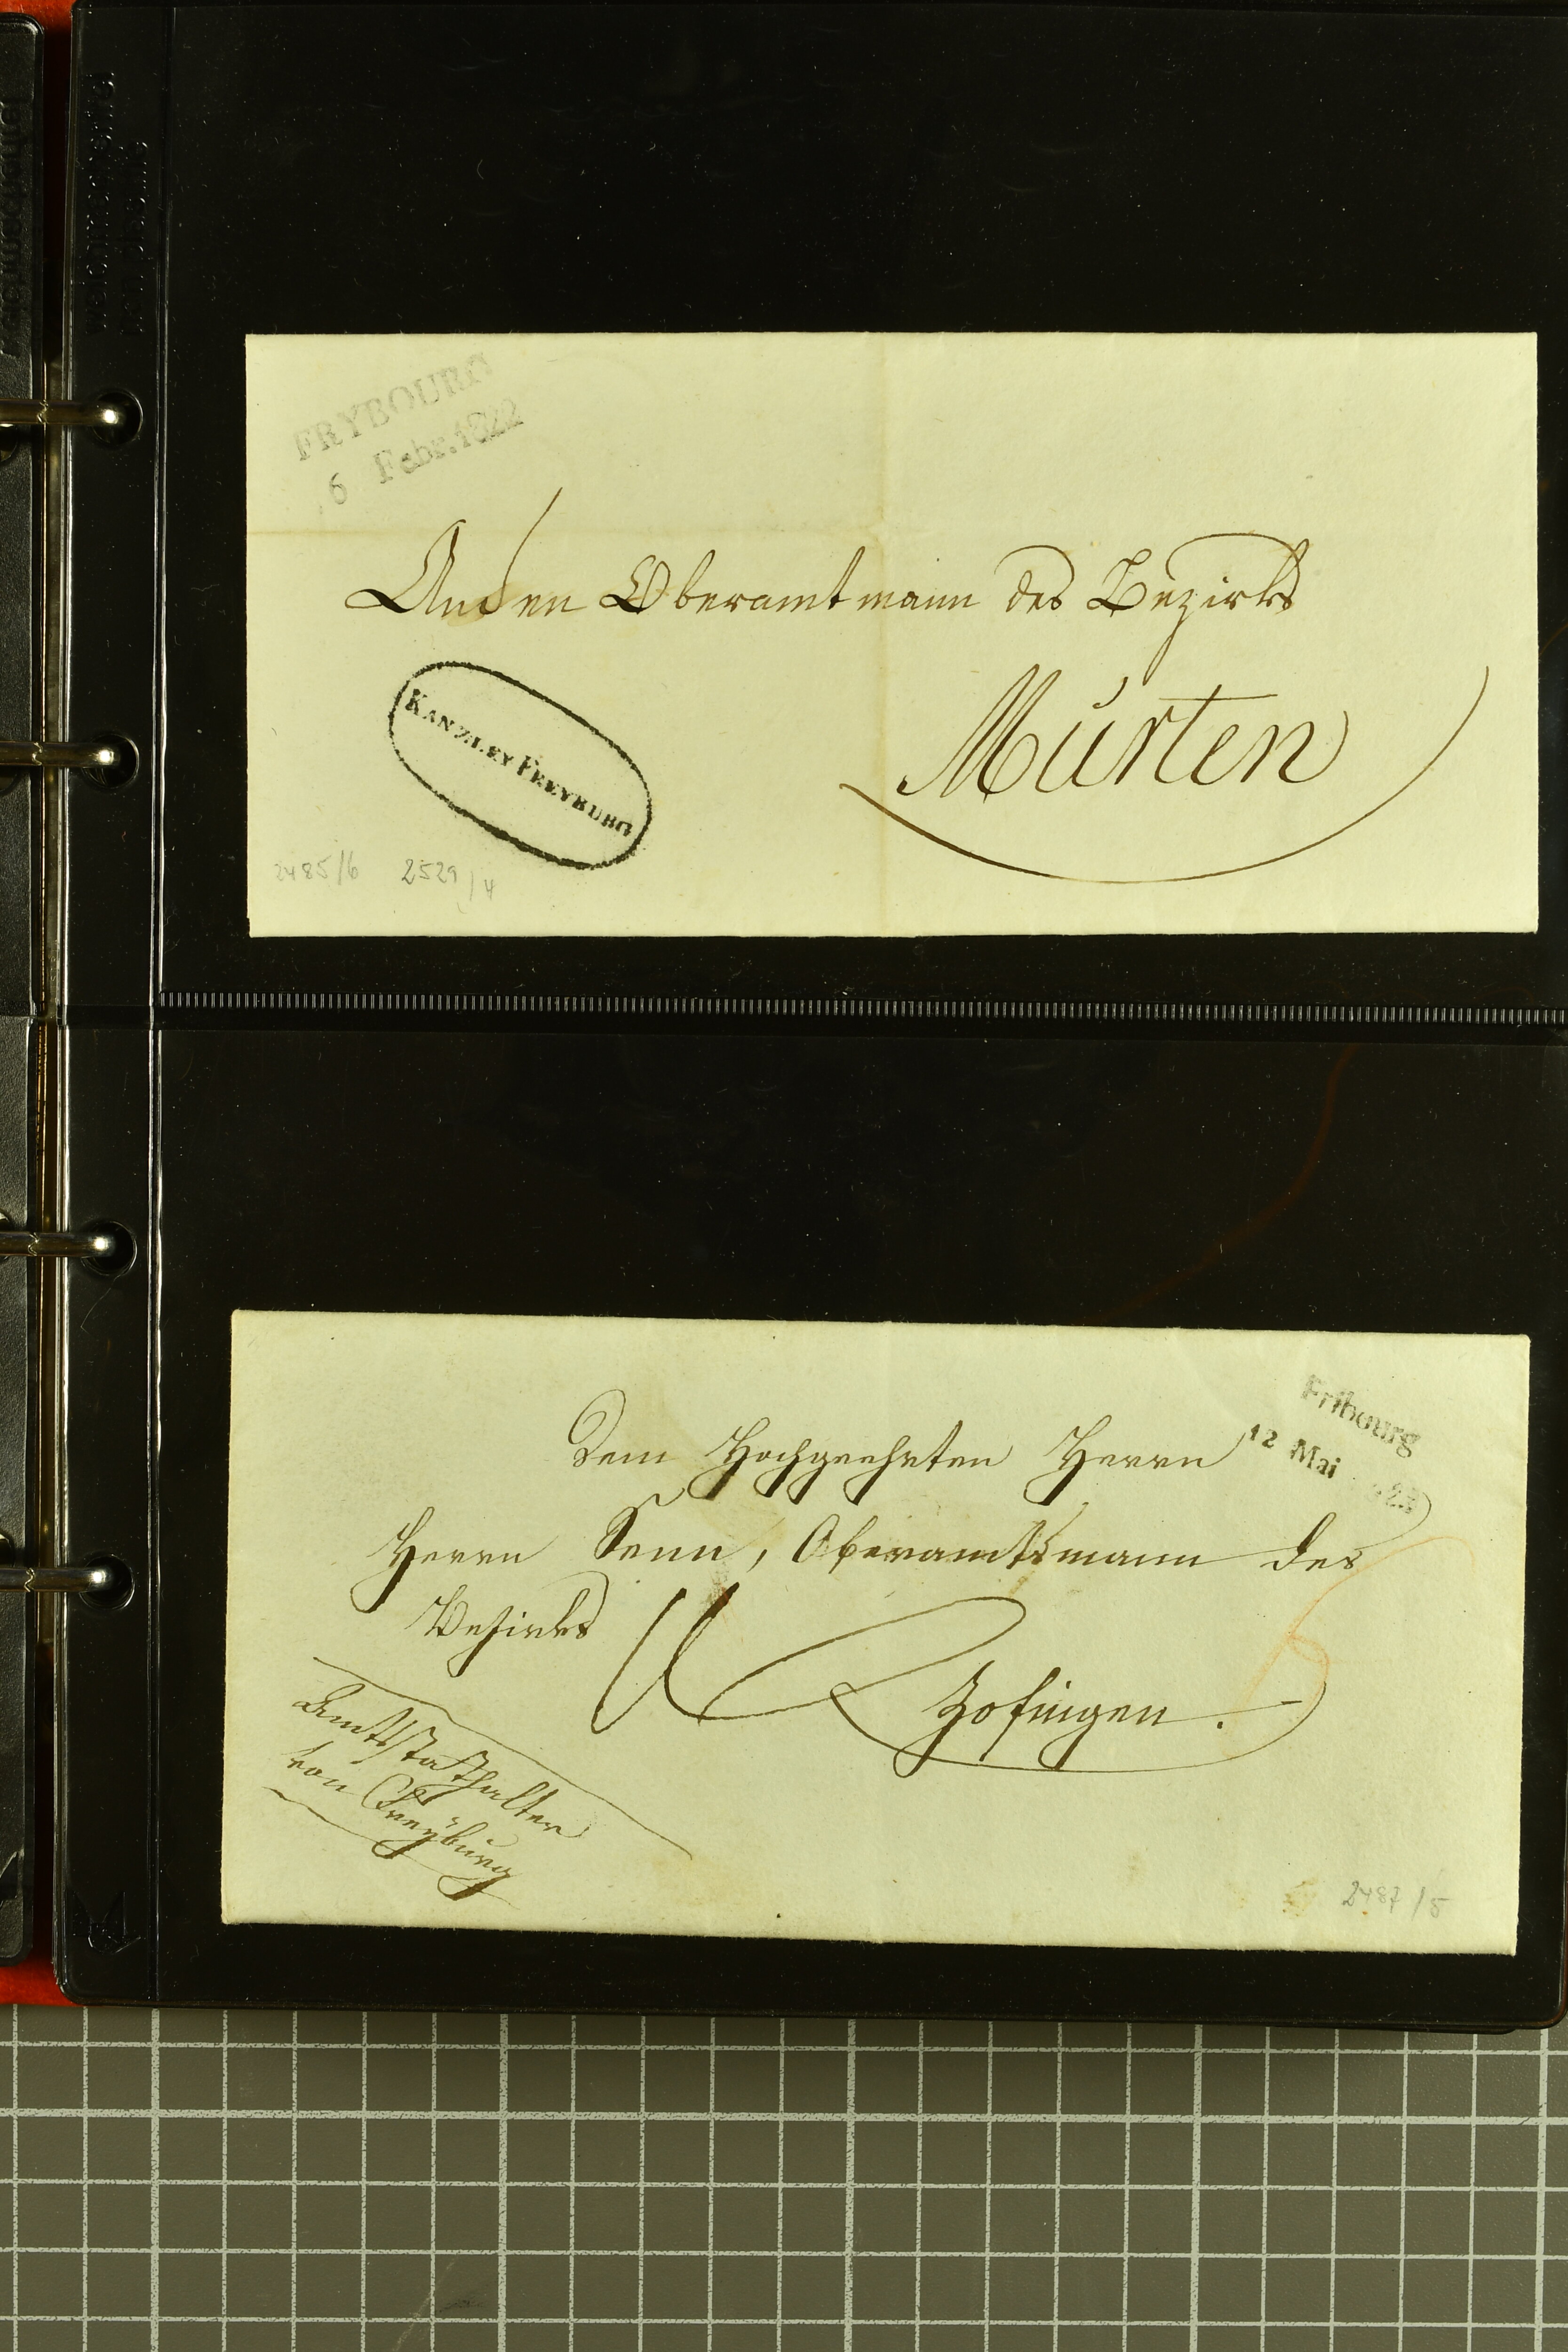 FRYBOURG
6 Febr. 1822
An den Oberamtmann des Bezirks
Murten
KANZLEY FREYBURG
2485/6 2529/4
Fribourg
12 Mai 23
Dem Hochgeehrten Herrn
Herrn Senn, Oberamtsmann des
Bezirks
Zofingen.
Amtsstatthalter
von Freÿburg
2487/5